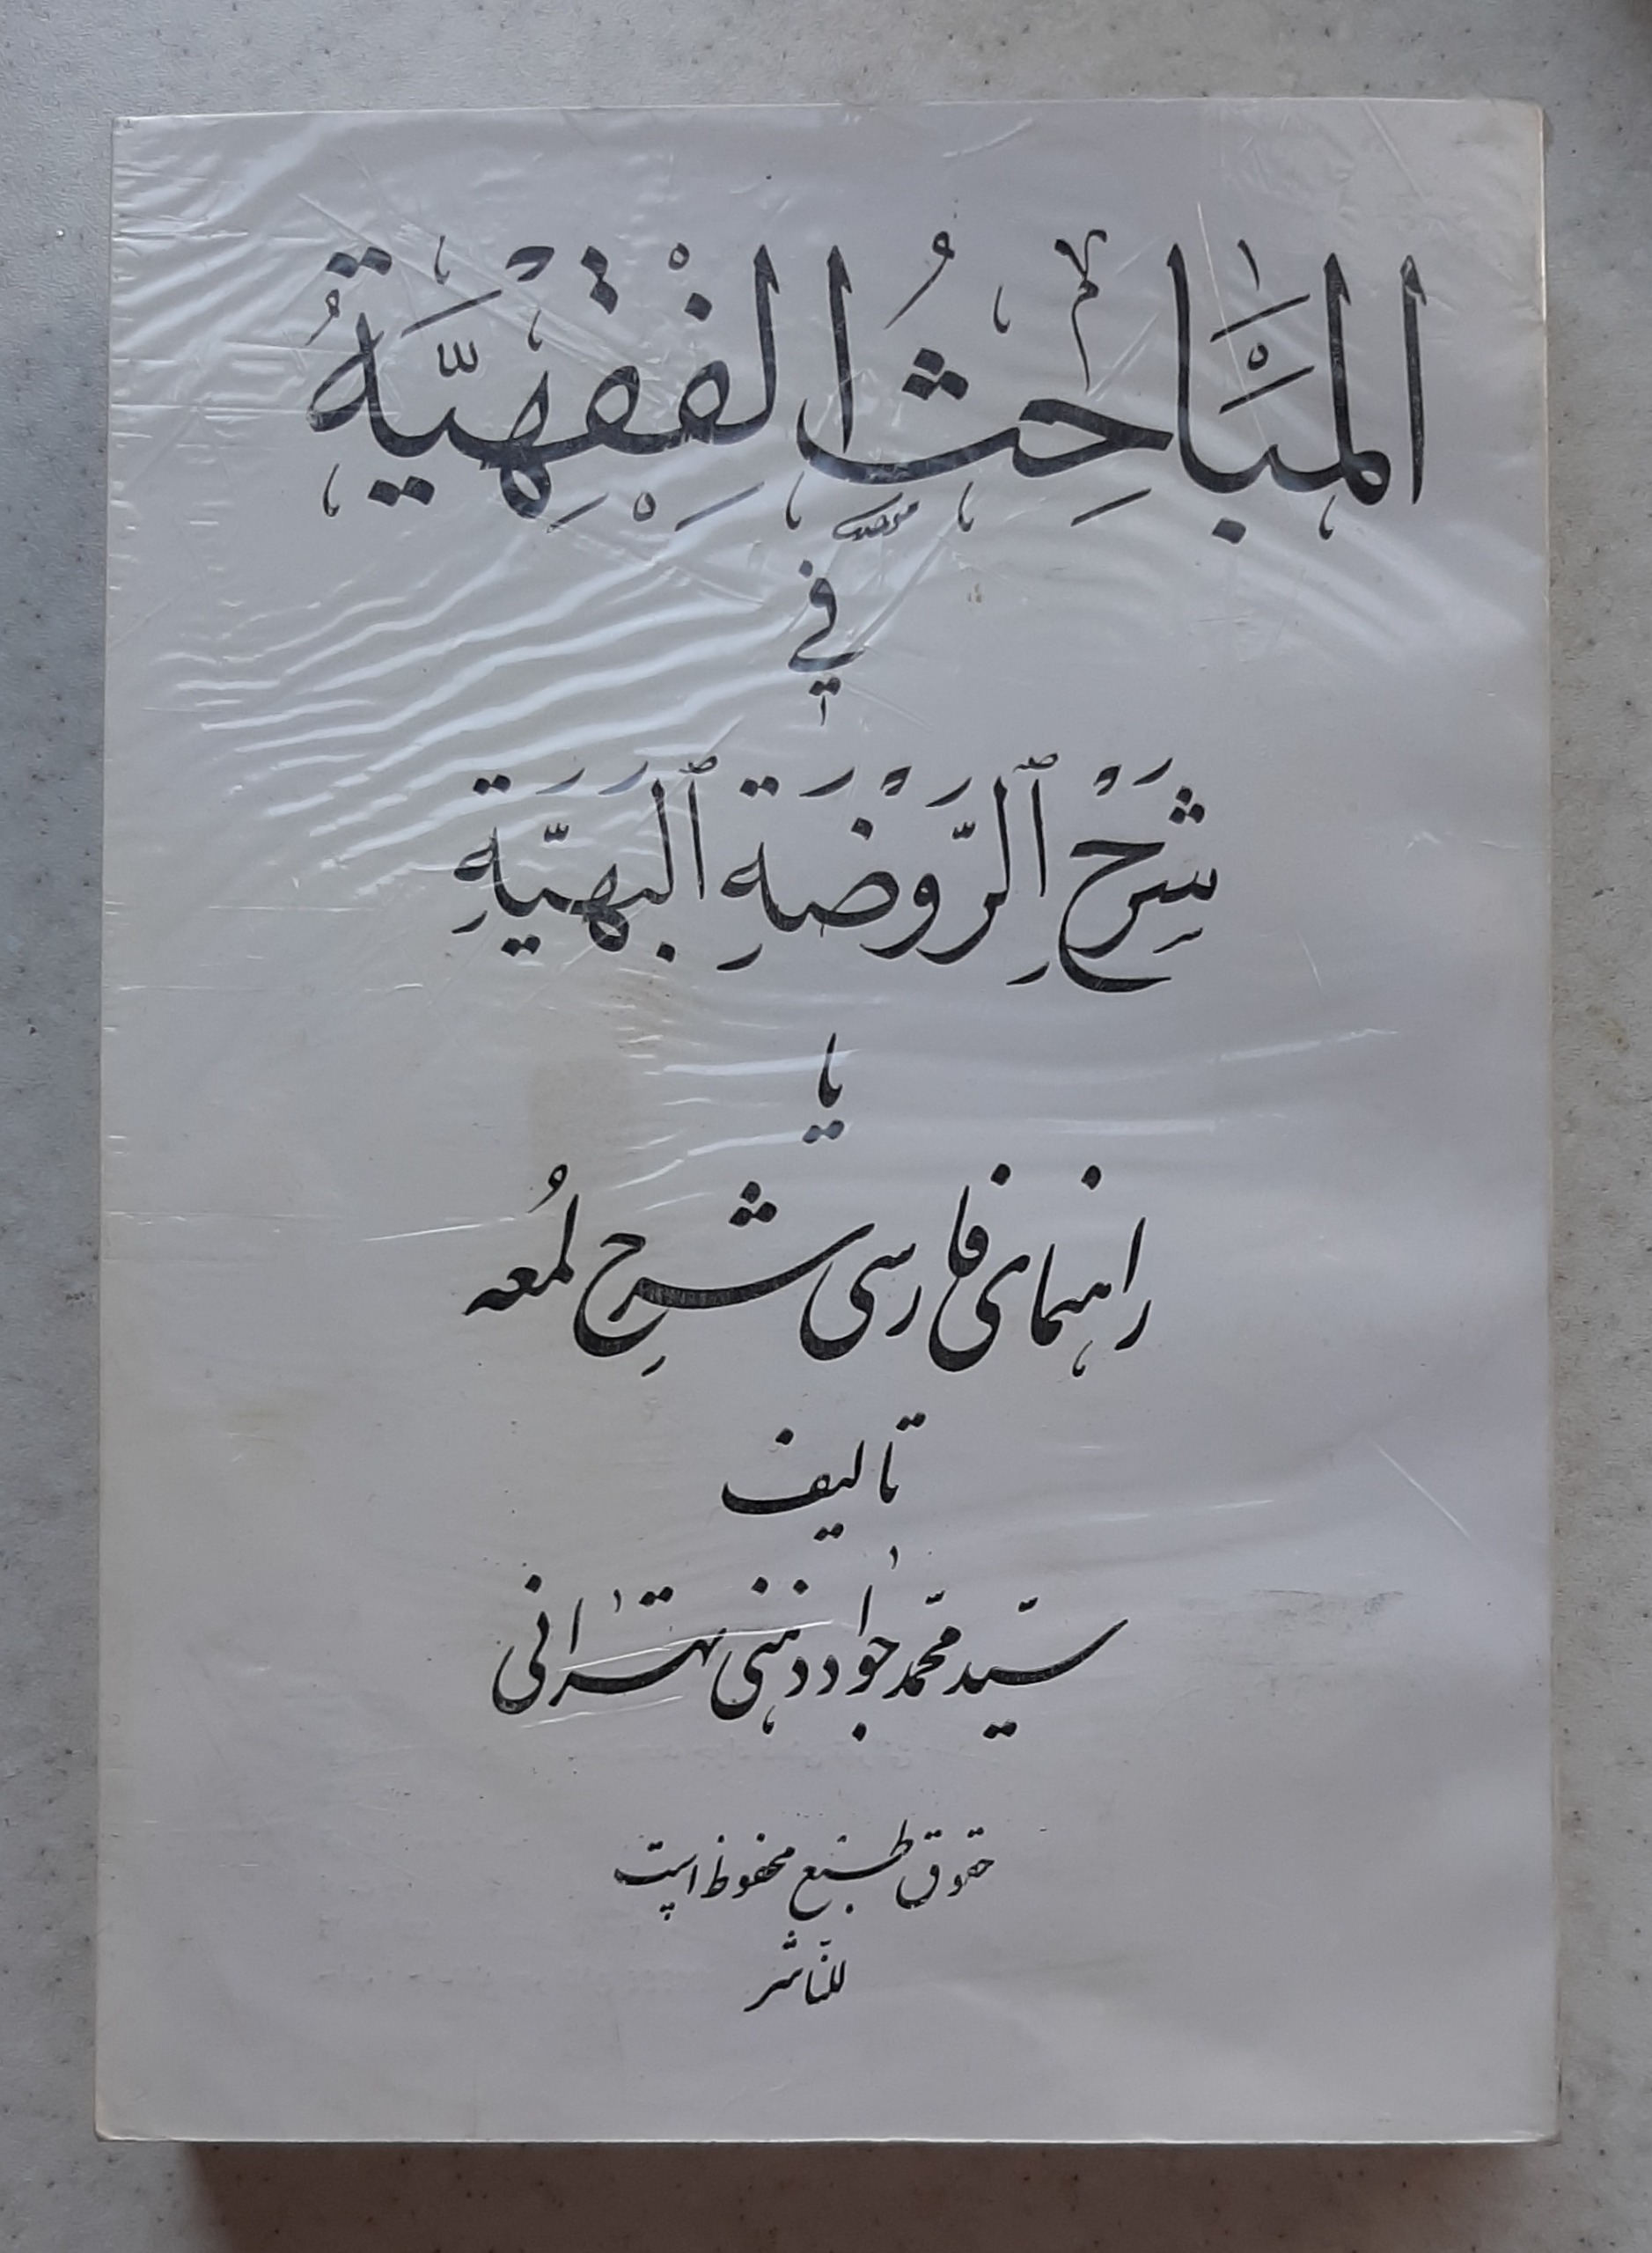 المَبَاحِثُ الفِقْهِيَّةُ
في
شَرْحِ ٱلرَّوْضَةِ ٱلبَهَيَّةِ
یا
راهنمای فارسی شرحِ لُمعه
تالیف
سیّد محمّد جواد ذهنی تهرانی
حقوق طبع محفوظ است
للنّاشر